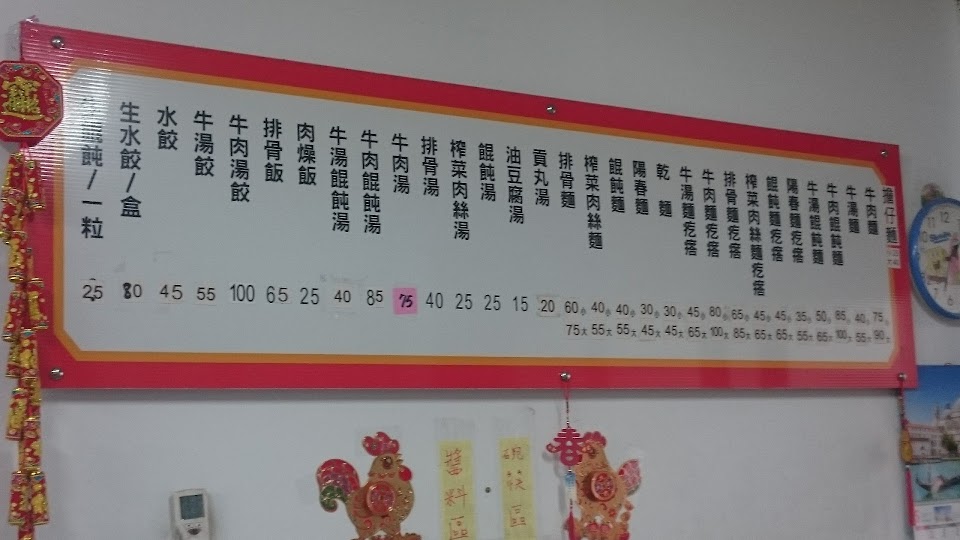 擔仔麵
牛肉麵 75小 90大
牛湯麵 40小 55大
牛肉餛飩麵 85小 100大
牛湯餛飩麵 50小 65大
陽春麵疙瘩 35小 55大
餛飩麵疙瘩 45小 65大
榨菜肉絲麵疙瘩 45小 65大
排骨麵疙瘩 65小 85大
牛肉麵疙瘩 80小 100大
牛湯麵疙瘩 45小 65大
乾麵 30小 45大
陽春麵 30小 45大
餛飩麵 40小 55大
榨菜肉絲麵 40小 55大
排骨麵 60小 75大
貢丸湯 20
油豆腐湯 15
餛飩湯 25
榨菜肉絲湯 25
排骨湯 40
牛肉湯 75
牛肉餛飩湯 85
牛湯餛飩湯 40
肉燥飯 25
排骨飯 65
牛肉湯餃 100
牛湯餃 55
水餃 45
生水餃/盒 80
餛飩/一粒 2.5
春
碗筷區
醬料區